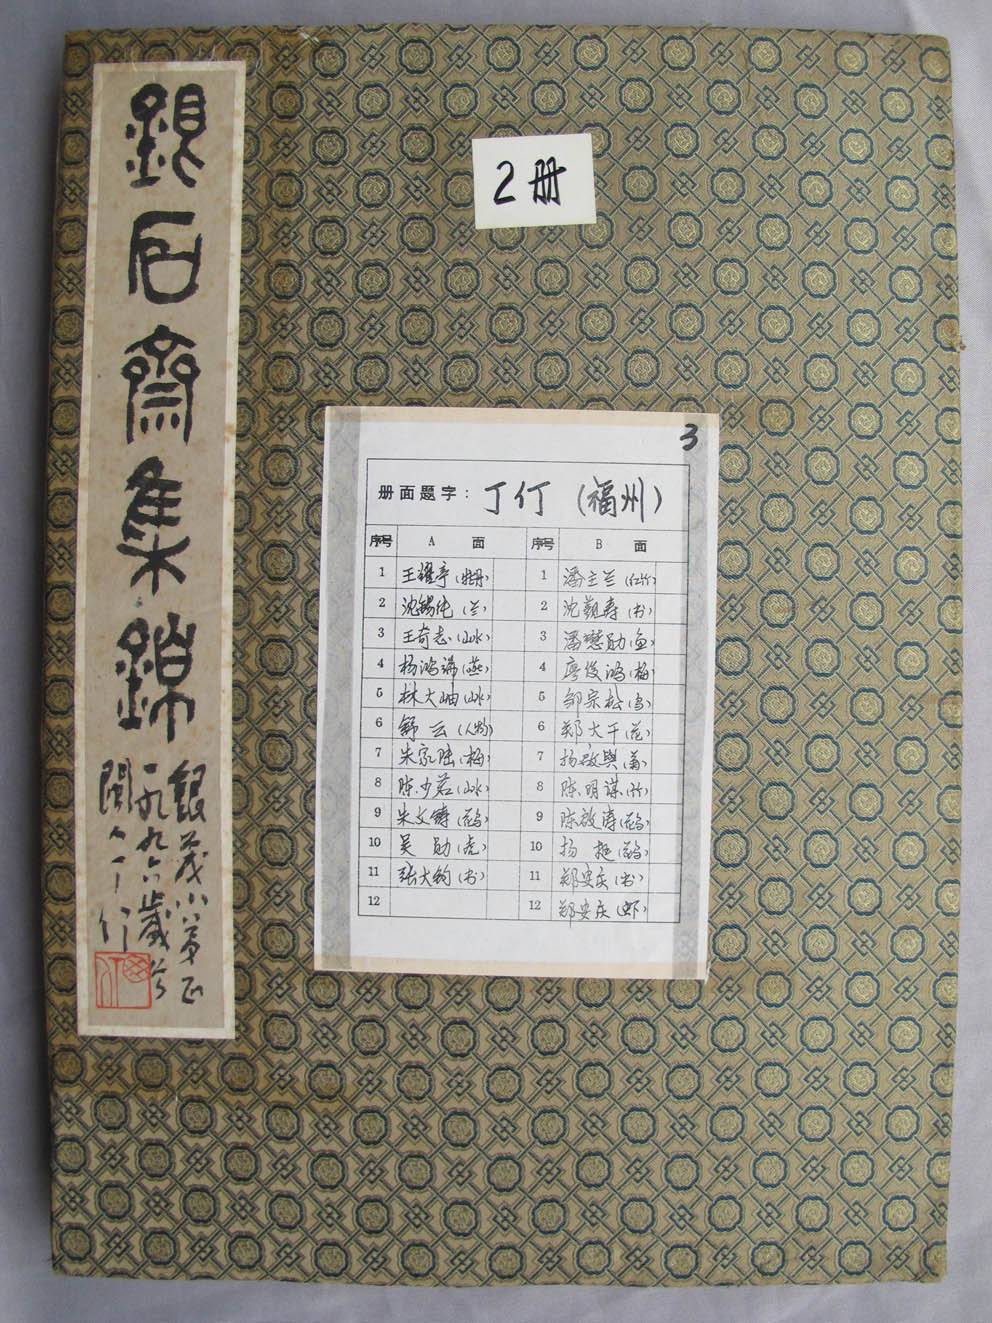 銀石齋集錦
銀茂小弟正
一九九六歲公
閩人丁仃
2册
3
册面题字：丁仃（福州）
序号 A 面 序号 B 面
1 王耀亭（牡丹） 1 潘主兰（红竹）
2 沈锡纯（兰） 2 沈觐寿（书）
3 王奇志（山水） 3 潘懋勋（鱼）
4 杨鸿瑞（燕） 4 廖俊鸿（梅）
5 林大岫（山水） 5 邹宗松
6 舒云（人物） 6 郑大干（花）
7 朱家陆（梅） 7 杨啟與（菊）
8 陈少若（山水） 8 陈明谋（竹）
9 朱文铸（花鸟） 9 陈啟涛（花鸟）
10 吴勋（虎） 10 杨挺（花鸟）
11 张大钧（书） 11 郑安庆（书）
12 12 郑安庆（虾）